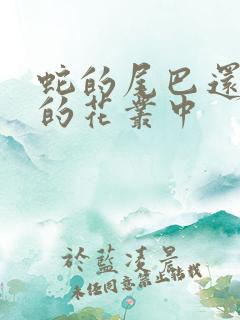 蛇的尾巴還
的花叢中
於藍凌晨
未經同意禁止轉載